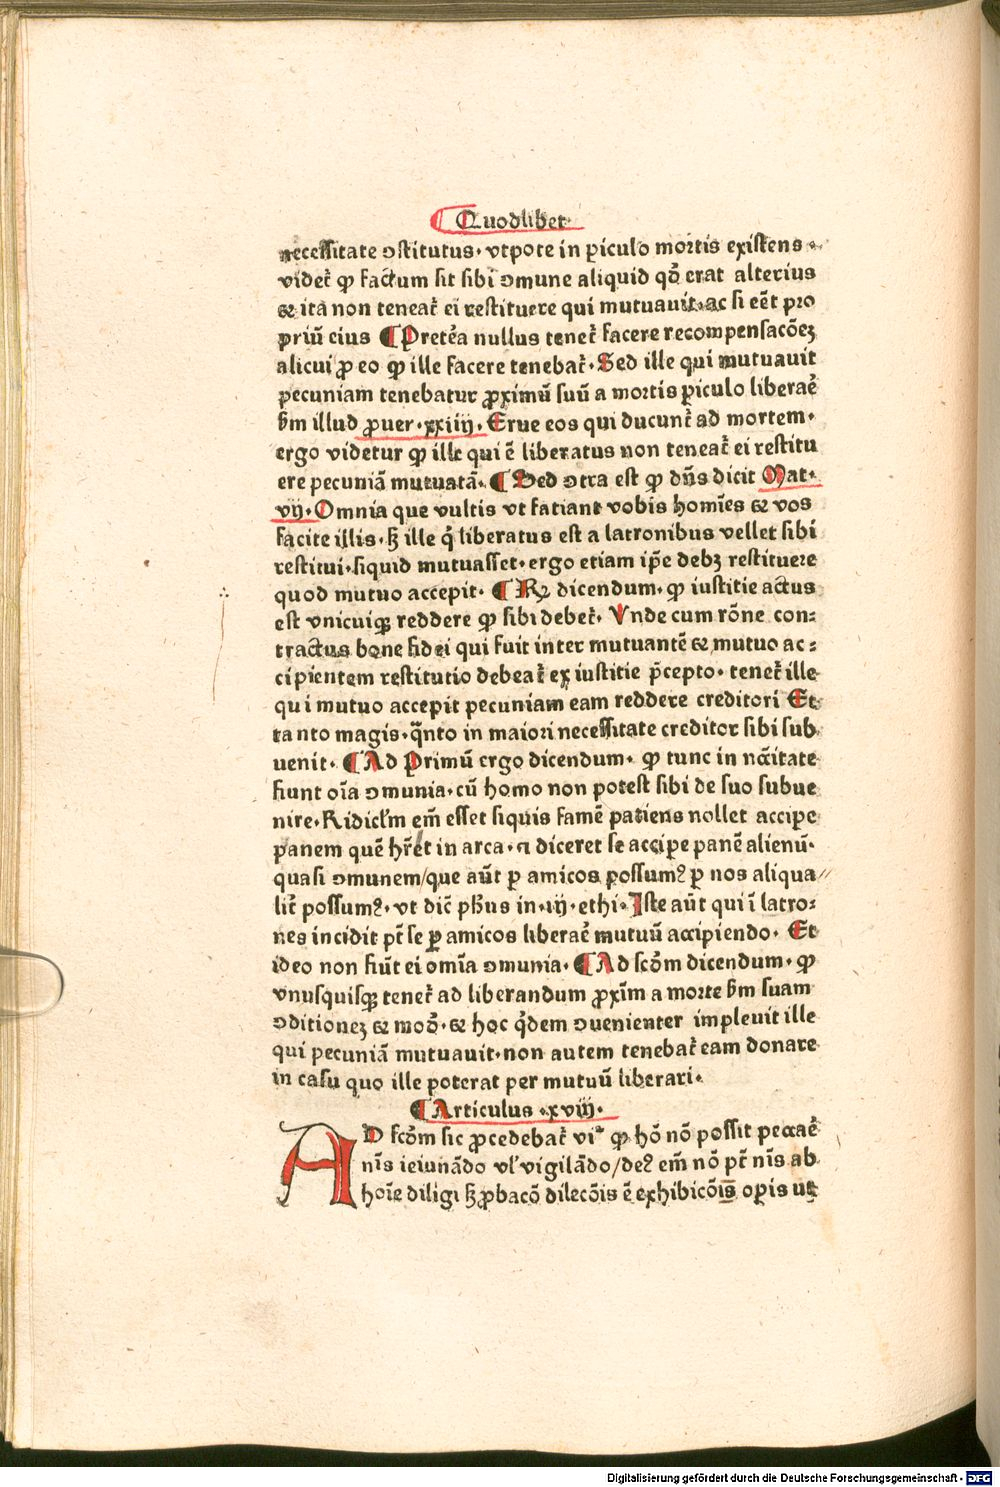 Quodlibet
necessitate ↄstitutus· vtpote in ꝑiculo mortis existens
videt᷑ ꝙ factum sit sibi ↄmune aliquid qđ erat alterius
& ita non teneat᷑ ei restituere qui mutuauit· ac si eēt pro
priū eius ¶ Preteͬa nullus tenet᷑ facere recompensacōeꝫ
alicui ꝓ eo ꝙ ille facere tenebat᷑· Sed ille qui mutuauit
pecuniam tenebatur ꝓximū suū a mortis ꝑiculo liberaᷣe
ẜm illud ꝓuer· xxiiij· Erue eos qui ducunt᷑ ad mortem·
ergo videtur ꝙ ille qui ē liberatus non teneat᷑ ei restitu
ere pecuniā mutuatā· ¶ Sed ↄtra est ꝙ dn̄s dicit Mat·
vij· Omnia que vultis vt fatiant vobis homīes & vos
facite illis· sꝫ ille q̇ liberatus est a latronibus vellet sibi
restitui· siquid mutuasset· ergo etiam ip̄e debꝫ restituere
quod mutuo accepit· ¶ R̥ dicendum· ꝙ iustitie actus
est vnicuiqꝫ reddere ꝙ sibi debet᷑· Vnde cum rōne con:
tractus bone fidei qui fuit inter mutuantē & mutuo ac:
cipientem restitutio debeat᷑ ex iustitie p̄cepto· tenet᷑ ille
qui mutuo accepit pecuniam eam reddere creditori Et
tanto magis· q̄nto in maiori necessitate creditor sibi sub
uenit· ¶ Ad Primū ergo dicendum· ꝙ tunc in nc̄itate
fiunt oīa ↄmunia· cū homo non potest sibi de suo subue
nire· Ridicl'm em̄ esset siquis famē patiens nollet accipe
panem quē hr̄et in arca· ⁊ diceret se accipe panē alienū·
quasi ↄmunem/que aūt ꝑ amicos possumꝰ ꝑ nos aliqua//
lit᷑ possumꝰ· vt dic̄ ph̄us in· iij· ethi· Iste aūt qui ī latro:
nes incidit pt̄ se ꝑ amicos liberaᷣe mutuū accipiendo· Et
ideo non fiūt ei omīa ↄmunia· ¶ Ad scd̄m dicendum· ꝙ
vnusquisqꝫ tenet᷑ ad liberandum ꝓxīm a morte ẜm suam
ↄditioneꝫ & modū· & hoc q̇dem ↄuenienter impleuit ille
qui pecuniā mutuauit· non autem tenebat᷑ eam donare
in casu quo ille poterat per mutuū liberari·
¶ Articulus ·xviij·
AD scd̄m sic ꝓcedebat᷑ vi᷑ ꝙ hō nō possit peccaᷣe
nīs ieiunādo vl' vigilādo/deꝰ em̄ nō pt̄ nīs ab
hoīe diligi sꝫ ꝓbacō dilecōis ē exhibicōis oꝑis ut
Digitalisierung gefördert durch die Deutsche Forschungsgemeinschaft - DFG